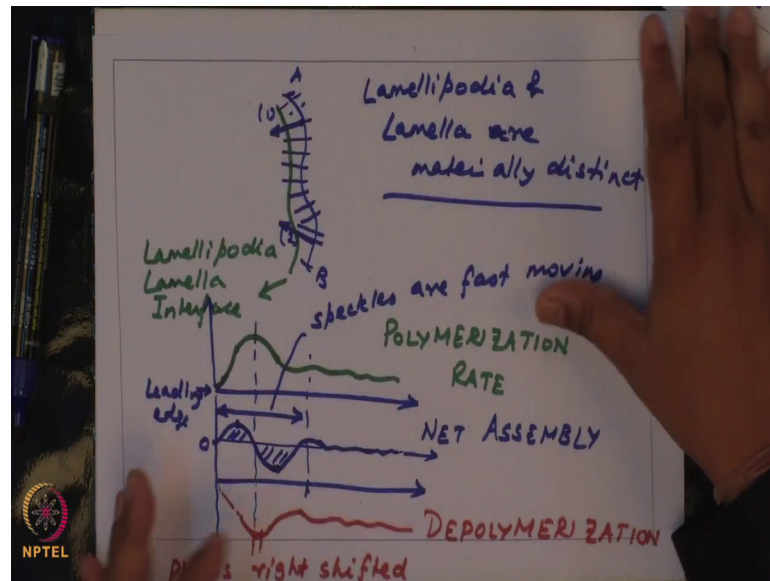 A
(1)
Lamellipodia &
Lamella are
materially distinct
B
Lamellipodia
Lamella
Interface
speckles are fast moving
POLYMERIZATION
RATE
Leading
edge
0
NET ASSEMBLY
DEPOLYMERIZATION
right shifted
NPTEL